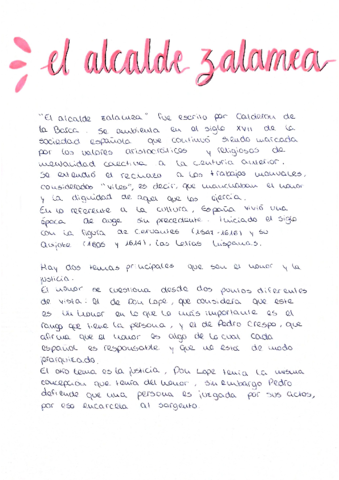 el alcalde zalamea
"El alcalde zalamea" Fue escrito por Calderón de
la Barca. Se ambienta en el siglo XVII de la
sociedad española que continuó siendo marcada
por los valores aristocráticos y religiosos de
mentalidad colectiva de la centuria anterior.
Se extendió el rechazo a los trabajos manuales,
considerados "viles", es decir, que manchaban el honor
y la dignidad de aquel que los ejercía.
En lo referente a la cultura, España vivió una
época de auge sin precedente. Iniciado el siglo
con la figura de Cervantes (1547-1616) y su
Quijote (1605 y 1614), las letras hispanas.
Hay dos temas principales que son el honor y la
justicia.
El honor se cuestiona desde dos puntos diferentes
de vista. El de Don Lope, que considera que este
es un honor en lo que lo más importante es el
rango que tiene la persona, y el de Pedro Crespo, que
afirma que el honor es algo de lo cual cada
español es responsable y que no esta de modo
jerarquizado.
El otro tema es la justicia, Don Lope tenía la misma
concepción que tenía del honor, sin embargo Pedro
defiende que una persona es juzgada por sus actos,
por eso encarcela al sargento.